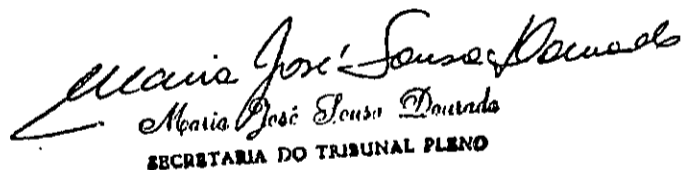 Maria José Sousa Dourado
Maria José Sousa Dourado
SECRETARIA DO TRIBUNAL PLENO